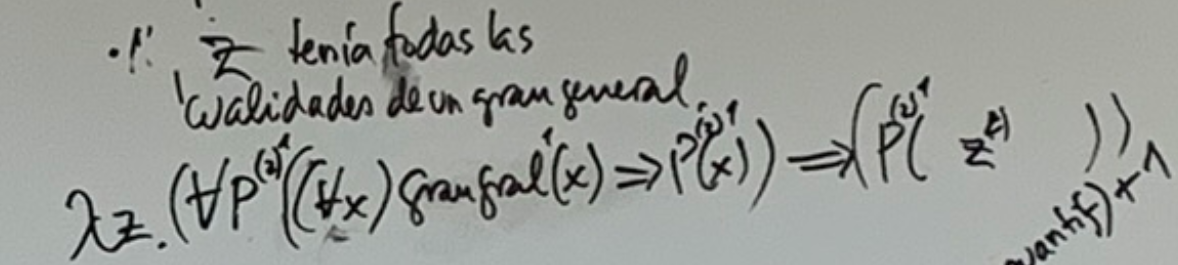 z tenía todas las
cualidades de un gran general.
λz. (∀P⁽²⁾¹((∀x) gran gral¹(x) ⇒ P⁽²⁾¹(x)) ⇒ (P⁽²⁾¹( z⁽²⁾ ))
cuantif) + 1